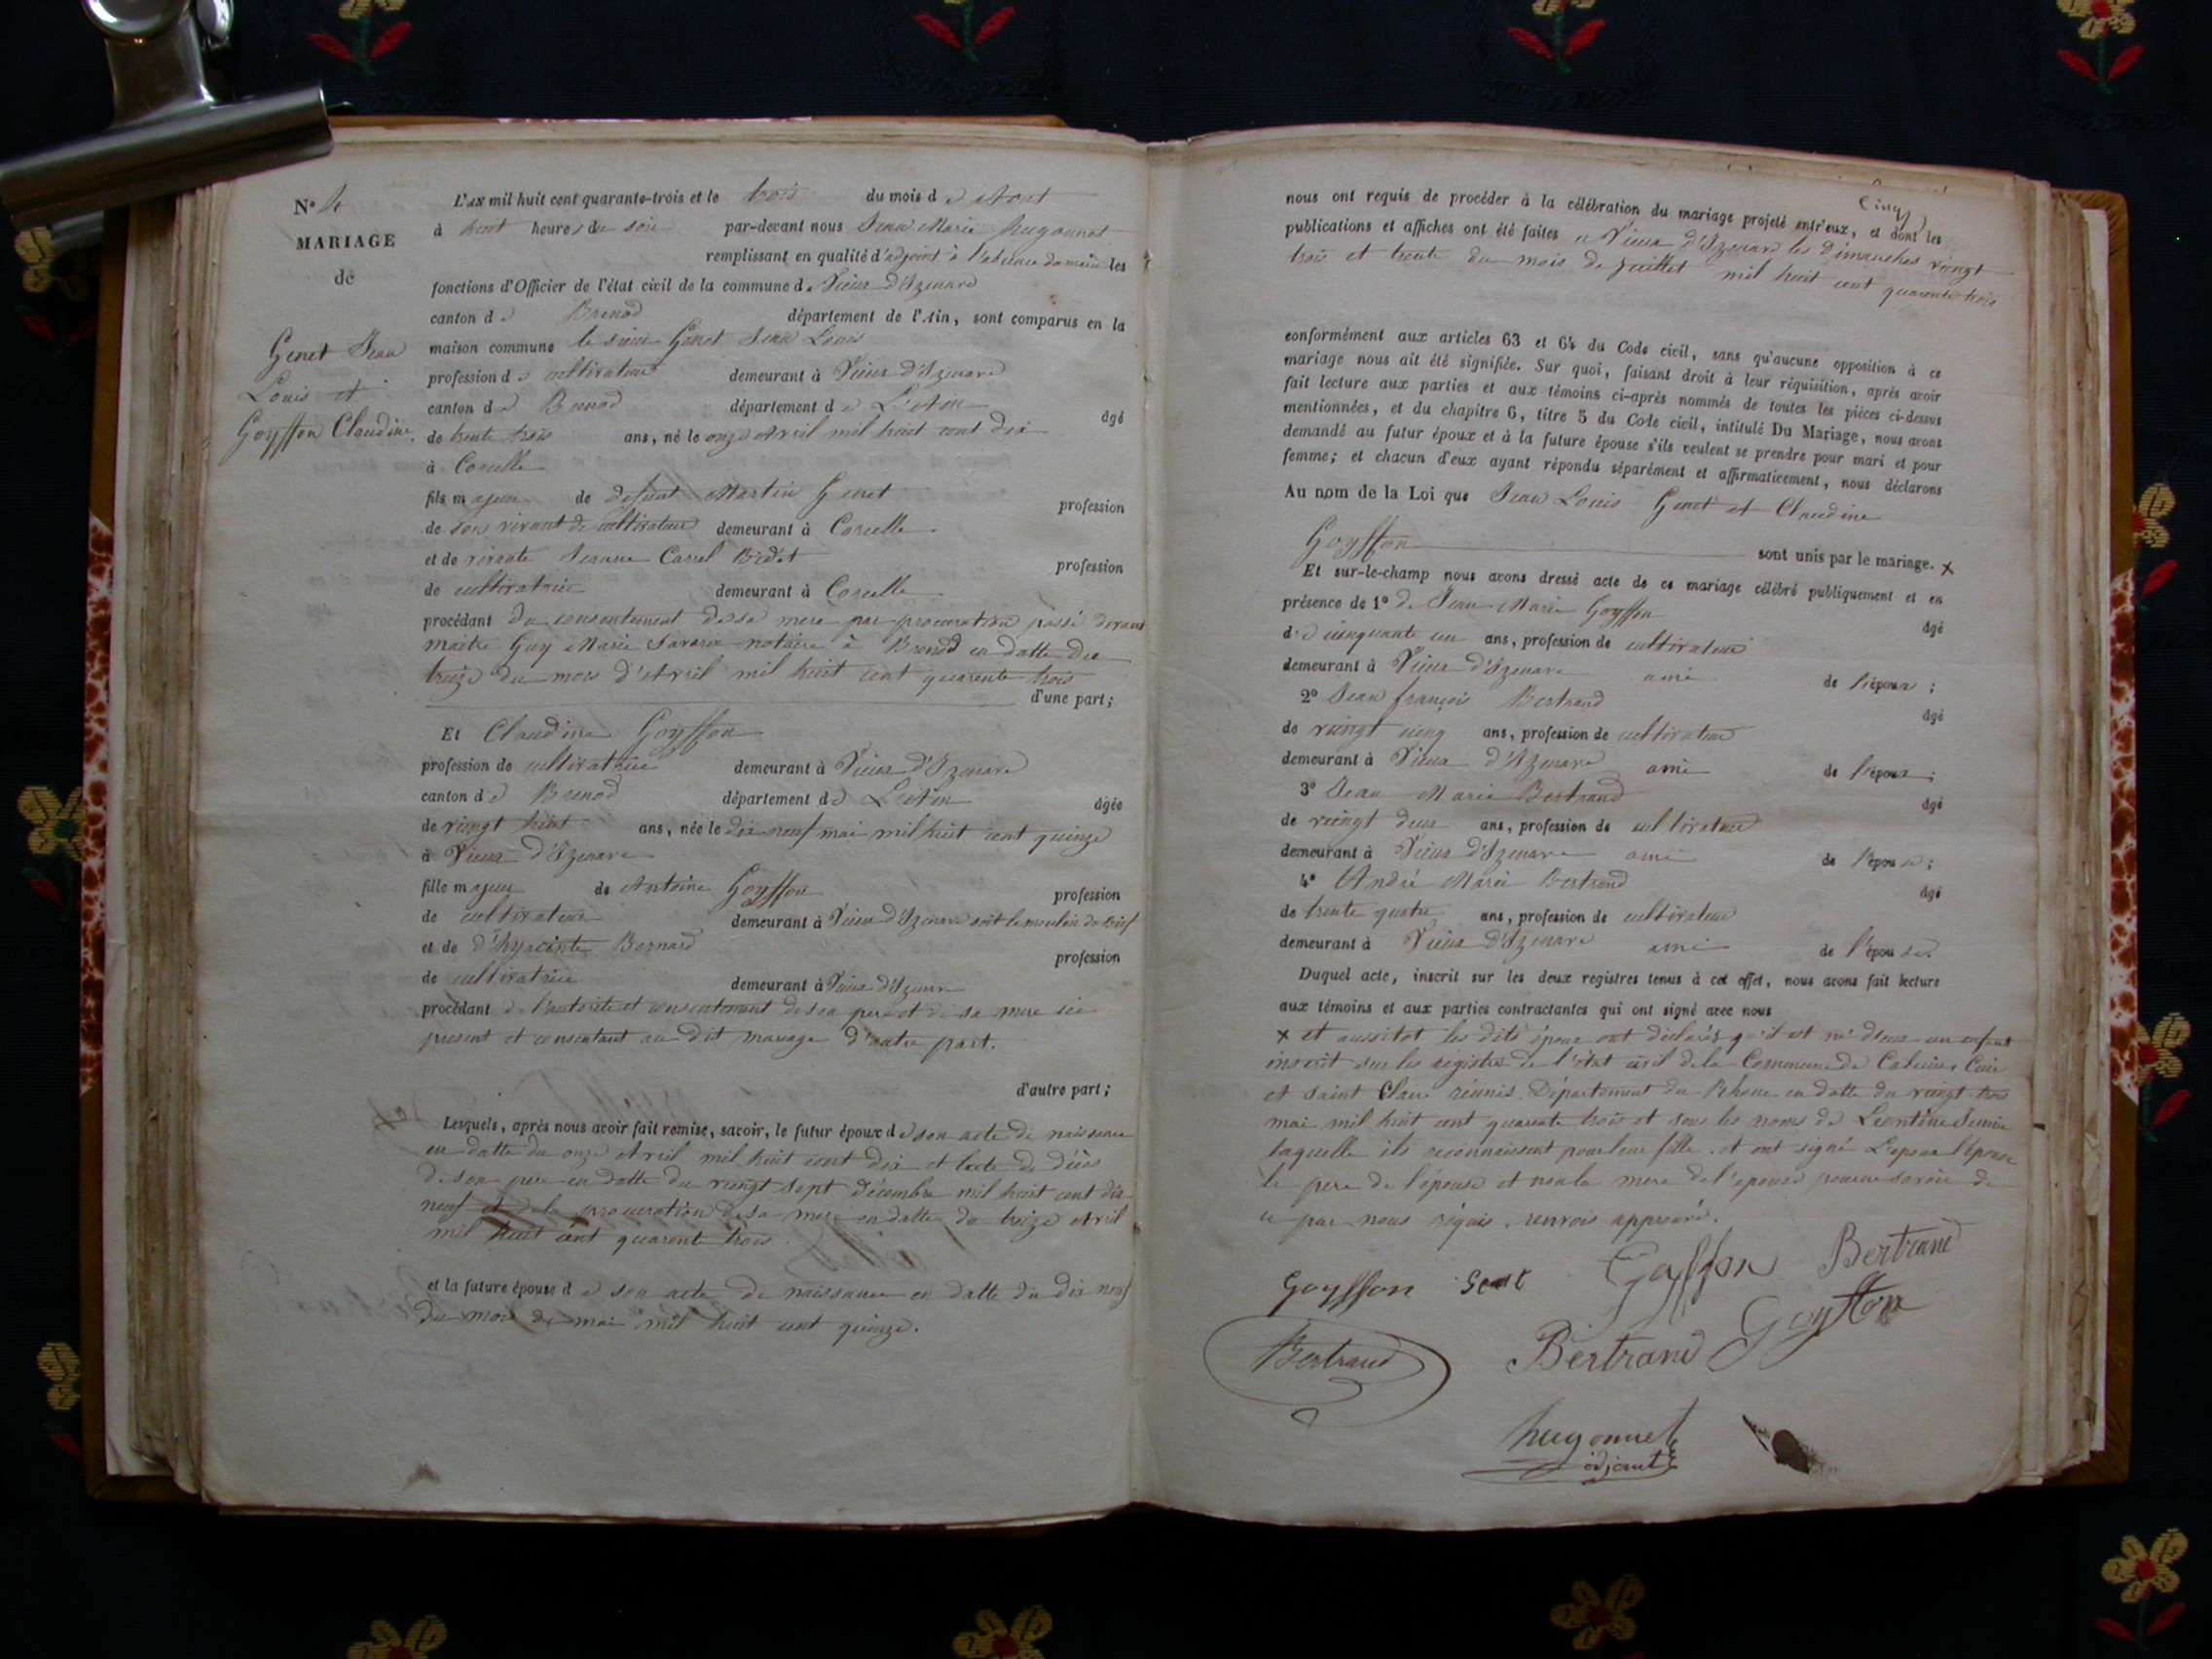 N° 4
MARIAGE
de
Genet Jean
Louis et
Goyffon Claudine.
L'AN mil huit cent quarante-trois et le trois du mois d'Aout
à huit heures du soir par-devant nous Jean Marie hugonnet
remplissant en qualité d'adjoint à l'absence du maire les
fonctions d'Officier de l'état civil de la commune de Vieux d'Izenave
canton de Brenod département de l'Ain, sont comparus en la
maison commune le sieur Genet Jean Louis
profession de cultivateur demeurant à Vieux d'Izenave
canton de Brenod département de L'Ain âgé
de trente trois ans, né le onze Avril mil huit cent dix
à Corcelle
fils majeur de défunt Martin Genet profession
de son vivant de cultivateur demeurant à Corcelle
et de vivante Jeanne Carrel Bidet profession
de cultivatrice demeurant à Corcelle
procédant du consentement de sa mere par procuration passé devant
maitre Guy Marie Savarin notaire à Brenod en datte du
treize du mois d'Avril mil huit cent quarente trois
d'une part;
Et Claudine Goyffon
profession de cultivatrice demeurant à Vieux d'Izenave
canton de Brenod département de L'Ain âgée
de vingt huit ans, née le dix neuf mai mil huit cent quinze
à Vieux d'Izenave
fille majeur de Antoine Goyffon profession
de cultivateur demeurant à Vieux d'Izenave soit le moulin du Bief
et de d'hyacinte Bernard profession
de cultivatrice demeurant à Vieux d'Izenave
procédant de l'autorité et consentement de son pere et de sa mere ici
present et consentant au dit mariage d'autre part.
d'autre part;
Lesquels, après nous avoir fait remise, savoir, le futur époux de son acte de naissance
en datte du onze Avril mil huit cent dix et lacte de décès
de son pere en datte du vingt sept décembre mil huit cent dix
neuf et de la procuration de sa mere en datte du treize Avril
mil huit cent quarente trois.
et la future épouse de son acte de naissance en datte du dix neuf
du mois de mai mil huit cent quinze.
Cinq
nous ont requis de procéder à la célébration du mariage projeté entr'eux, et dont les
publications et affiches ont été faites a Vieux d'Izenave les Dimanches vingt
trois et trente du mois de Juillet mil huit cent quarente trois
conformément aux articles 63 et 64 du Code civil, sans qu'aucune opposition à ce
mariage nous ait été signifiée. Sur quoi, faisant droit à leur réquisition, après avoir
fait lecture aux parties et aux témoins ci-après nommés de toutes les pièces ci-dessus
mentionnées, et du chapitre 6, titre 5 du Code civil, intitulé Du Mariage, nous avons
demandé au futur époux et à la future épouse s'ils veulent se prendre pour mari et pour
femme; et chacun d'eux ayant répondu séparément et affirmativement, nous déclarons
Au nom de la Loi que Jean Louis Genet et Claudine
Goyffon sont unis par le mariage. x
Et sur-le-champ nous avons dressé acte de ce mariage célébré publiquement et en
présence de 1° de Jean Marie Goyffon âgé
de cinquante un ans, profession de cultivateur
demeurant à Vieux d'Izenave ami de l'époux;
2° Jean françois Bertrand âgé
de vingt cinq ans, profession de cultivateur
demeurant à Vieux d'Izenave ami de l'époux;
3° Jean Marie Bertrand âgé
de vingt deux ans, profession de cultivateur
demeurant à Vieux d'Izenave ami de l'épouse;
4° André Marie Bertrand âgé
de trente quatre ans, profession de cultivateur
demeurant à Vieux d'Izenave ami de l'épouse.
Duquel acte, inscrit sur les deux registres tenus à cet effet, nous avons fait lecture
aux témoins et aux parties contractantes qui ont signé avec nous
x et aussitot les dits époux ont déclarés q'il et né d'eux un enfant
inscrit sur les registres de l'état civil de la Commune de Caluire, Cuire
et saint Clair réunis. Département du Rhone en datte du vingt trois
mai mil huit cent quarante trois et sous les noms de Léontine
laquelle ils reconnaissent pour leur fille. et ont signé L'epoux l'épouse
le pere de l'épouse et non la mere de l'epouse pour ne savoir de
ce par nous réquis. renvois approuvé.
Goyffon Genet Goyffon Bertrand
Bertrand Bertrand Goyffon
hugonnet
adjoint